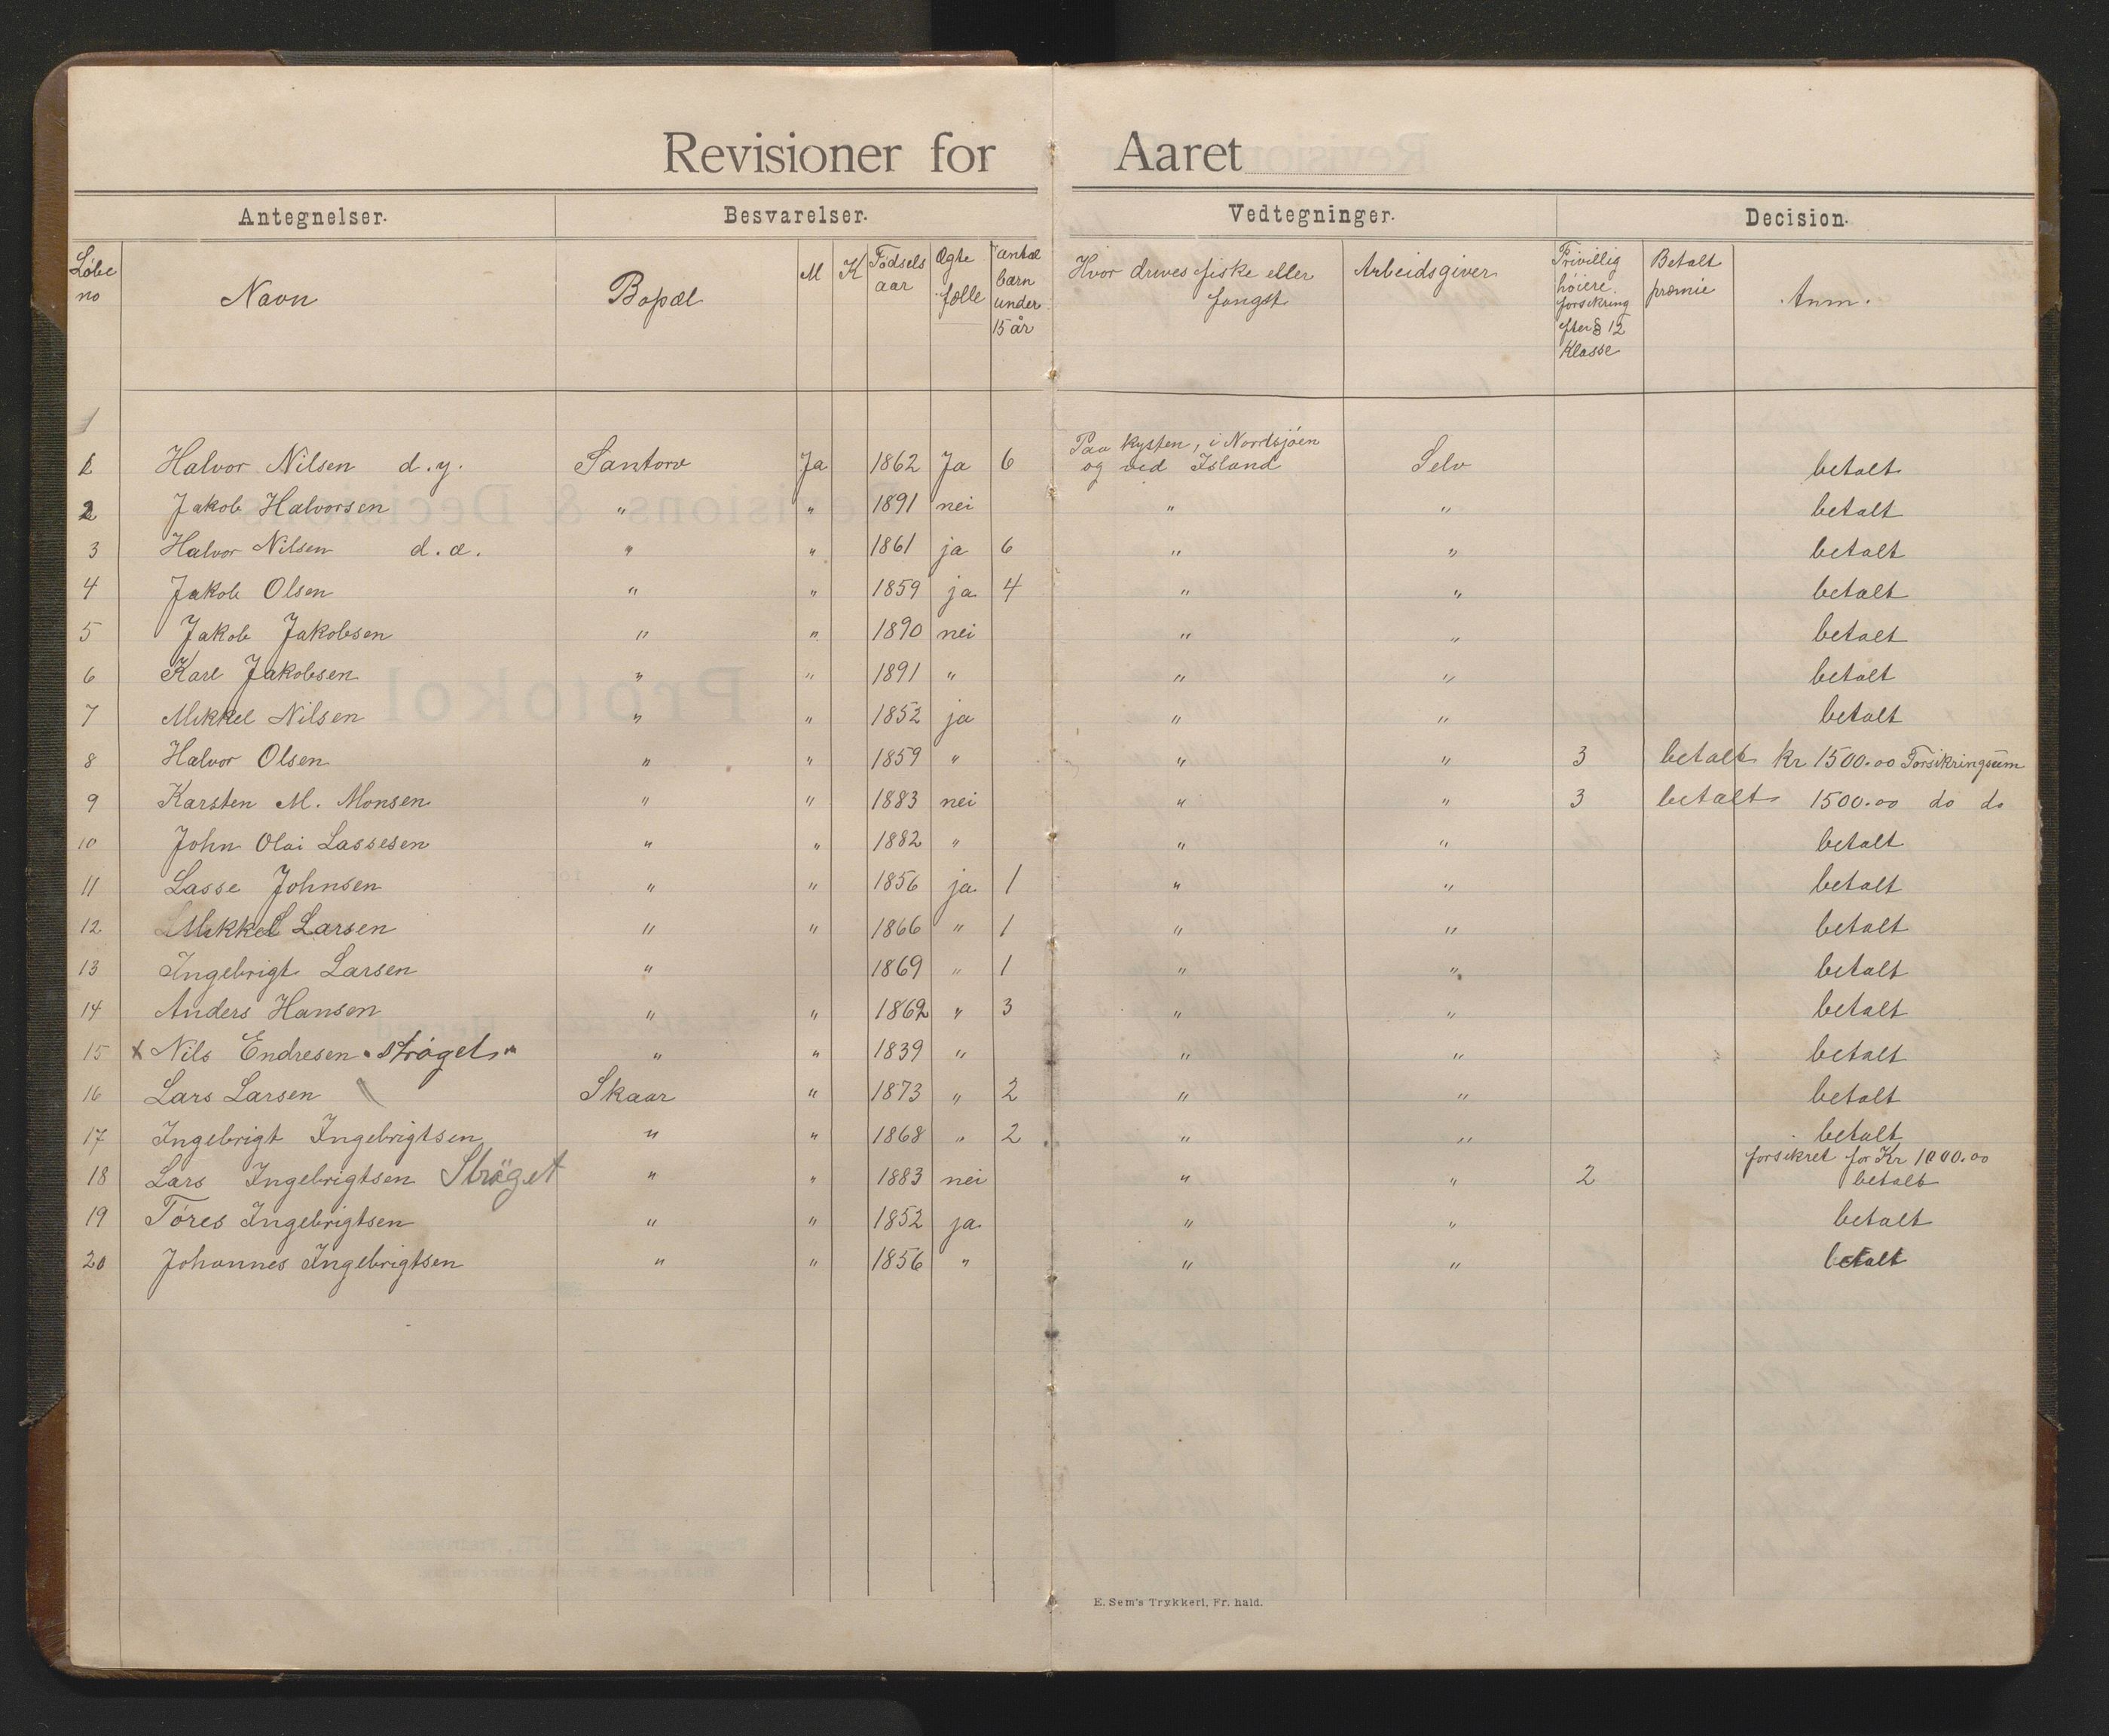 Revisioner for Aaret
Antegnelser. Besvarelser. Vedtegninger. Decision.
Løbe no Navn Bopæl M K Fødsels aar Ægte fælle antal barn under 15 år Hvor drives fiske eller fangst Arbeidsgiver Frivillig høiere forsikring efter § 12 Klasse Betalt præmie Anm.
1
1 Halvor Nilsen d.y. Santorv Ja 1862 Ja 6 Paa kysten, i Nordsjöen og ved Island Selv betalt
2 Jakob Halvorsen " " 1891 nei " " betalt
3 Halvor Nilsen d.æ. " " 1861 ja 6 " " betalt
4 Jakob Olsen " " 1859 ja 4 " " betalt
5 Jakob Jakobsen " " 1890 nei " " betalt
6 Karl Jakobsen " " 1891 " " " betalt
7 Mikkel Nilsen " " 1852 ja " " betalt
8 Halvor Olsen " " 1859 " " " 3 betalt kr 1500.00 Forsikringsum
9 Karsten M. Monsen " " 1883 nei " " 3 betalt 1500.00 do do
10 John Olai Lassesen " " 1882 " " " betalt
11 Lasse Johnsen " " 1856 ja 1 " " betalt
12 Mikkel Larsen " " 1866 " 1 " " betalt
13 Ingebrigt Larsen " 1869 " 1 " " betalt
14 Anders Hansen " " 1862 " 3 " " betalt
15 x Nils Endresen "strøget" " " 1839 " " " betalt
16 Lars Larsen Skaar " 1873 " 2 " " betalt
17 Ingebrigt Ingebrigtsen " " 1868 " 2 " " betalt
18 Lars Ingebrigtsen Ströget " " 1883 nei " " 2 forsikret for Kr 1000.00 betalt
19 Tøres Ingebrigtsen " " 1852 ja " " betalt
20 Johannes Ingebrigtsen " " 1856 " " " betalt
E. Sem's Trykkeri, Fr. hald.